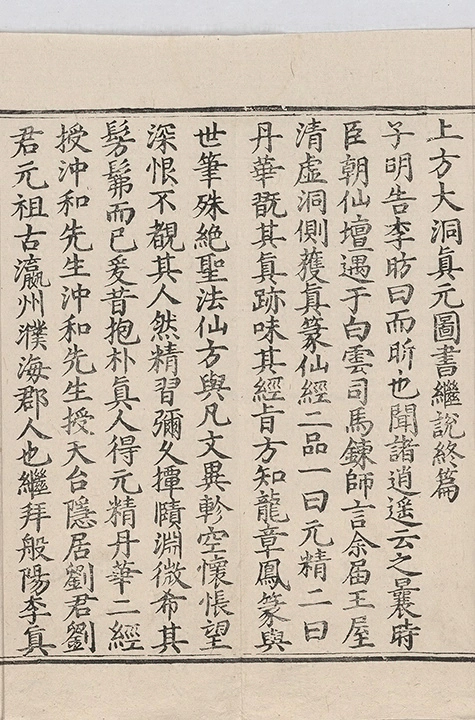 上方大洞眞元圖書繼說終篇
子明告李昉曰而昕也聞諸逍遥云之曩時
臣朝仙壇遇于白雲司馬鍊師言余届王屋
清虛洞側獲眞篆仙經二品一曰元精二曰
丹華翫其眞跡味其經旨方知龍章鳳篆與
世筆殊絶聖法仙方與凡文異軫空懷悵望
深恨不覩其人然精習彌久撢賾淵微希其
髣髴而已爰昔抱朴眞人得元精丹華二經
授沖和先生沖和先生授天台隱居劉君劉
君元祖古瀛州濮海郡人也繼拜般陽李眞